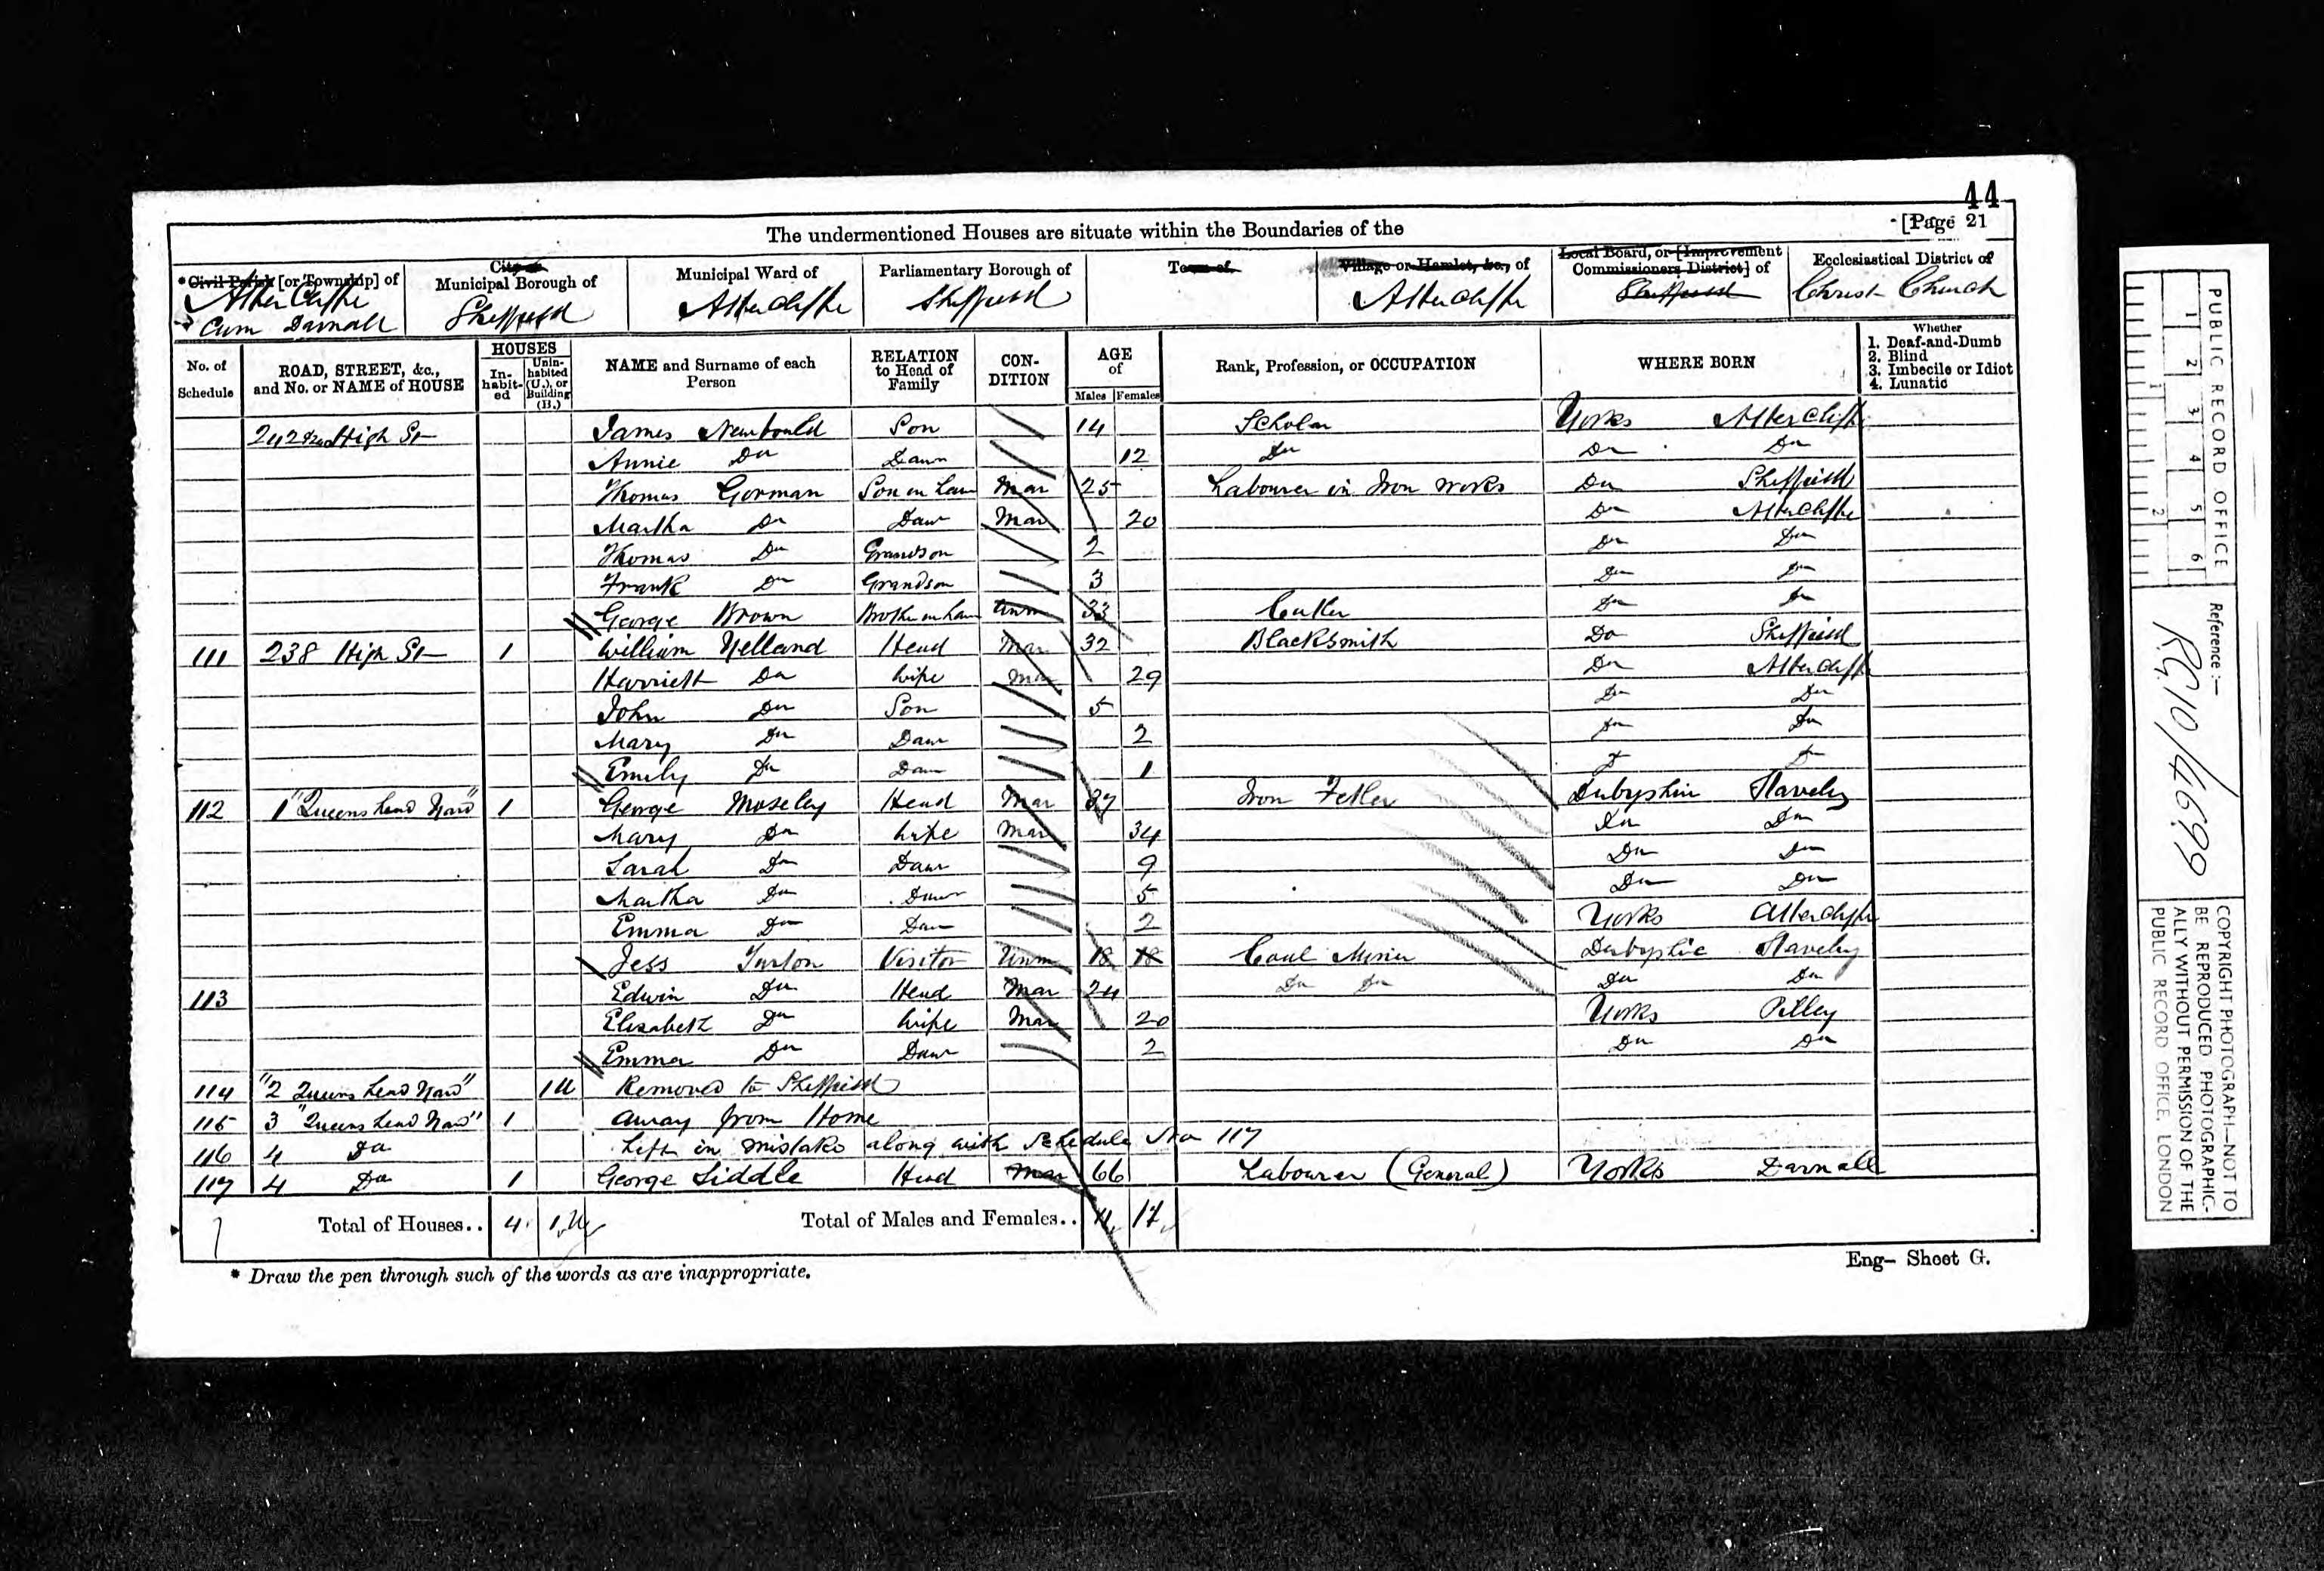 44
The undermentioned Houses are situate within the Boundaries of the [Page 21
*Civil Parish [or Township] of
Attercliffe
cum Darnall
City or
Municipal Borough of
Sheffield
Municipal Ward of
Attercliffe
Parliamentary Borough of
Sheffield
Town of
Village or Hamlet, &c., of
Attercliffe
Local Board, or [Improvement
Commissioners District] of
Sheffield
Ecclesiastical District of
Christ Church
No. of
Schedule
ROAD, STREET, &c.,
and No. or NAME of HOUSE
HOUSES
In-
habit-
ed
Unin-
habited
(U.), or
Building
(B.)
NAME and Surname of each
Person
RELATION
to Head of
Family
CON-
DITION
AGE
of
Males Females
Rank, Profession, or OCCUPATION
WHERE BORN
Whether
1. Deaf-and-Dumb
2. Blind
3. Imbecile or Idiot
4. Lunatic
242 High St James Newbould Son 14 Scholar Yorks Attercliffe
Annie Do Daur 12 Do Do Do
Thomas Gorman Son in Law Mar 25 Labourer in Iron Works Do Sheffield
Martha Do Daur Mar 20 Do Attercliffe
Thomas Do Grandson 2 Do Do
Frank Do Grandson 3 Do Do
George Brown Brother in Law Unm 33 Cutler Do Do
111 238 High St 1 William Yelland Head Mar 32 Blacksmith Do Sheffield
Harriett Do Wife Mar 29 Do Attercliffe
John Do Son 5 Do Do
Mary Do Daur 2 Do Do
Emily Do Daur 1 Do Do
112 1 "Queens Head Yard" 1 George Moseley Head Mar 37 Iron Fettler Derbyshire Staveley
Mary Do Wife Mar 34 Do Do
Sarah Do Daur 9 Do Do
Martha Do Daur 5 Do Do
Emma Do Daur 2 Yorks Attercliffe
Jess Turton Visitor Unm 18 18 Coal Miner Derbyshire Staveley
113 Edwin Do Head Mar 24 Do Do Do Do
Elizabeth Do Wife Mar 20 Yorks Pilley
Emma Do Daur 2 Do Do
114 "2 Queens Head Yard" 1U Removed to Sheffield
115 3 "Queens Head Yard" 1 Away from Home
116 4 Do Left in mistake along with Schedule No 117
117 4 Do 1 George Siddle Head Mar 66 Labourer (General) Yorks Darnall
Total of Houses.. 4 1U Total of Males and Females.. 11 17
* Draw the pen through such of the words as are inappropriate.
Eng- Sheet G.
PUBLIC RECORD OFFICE
1 2 3 4 5 6
1 2
Reference :-
RG10/4699
COPYRIGHT PHOTOGRAPH-NOT TO
BE REPRODUCED PHOTOGRAPHIC-
ALLY WITHOUT PERMISSION OF THE
PUBLIC RECORD OFFICE, LONDON